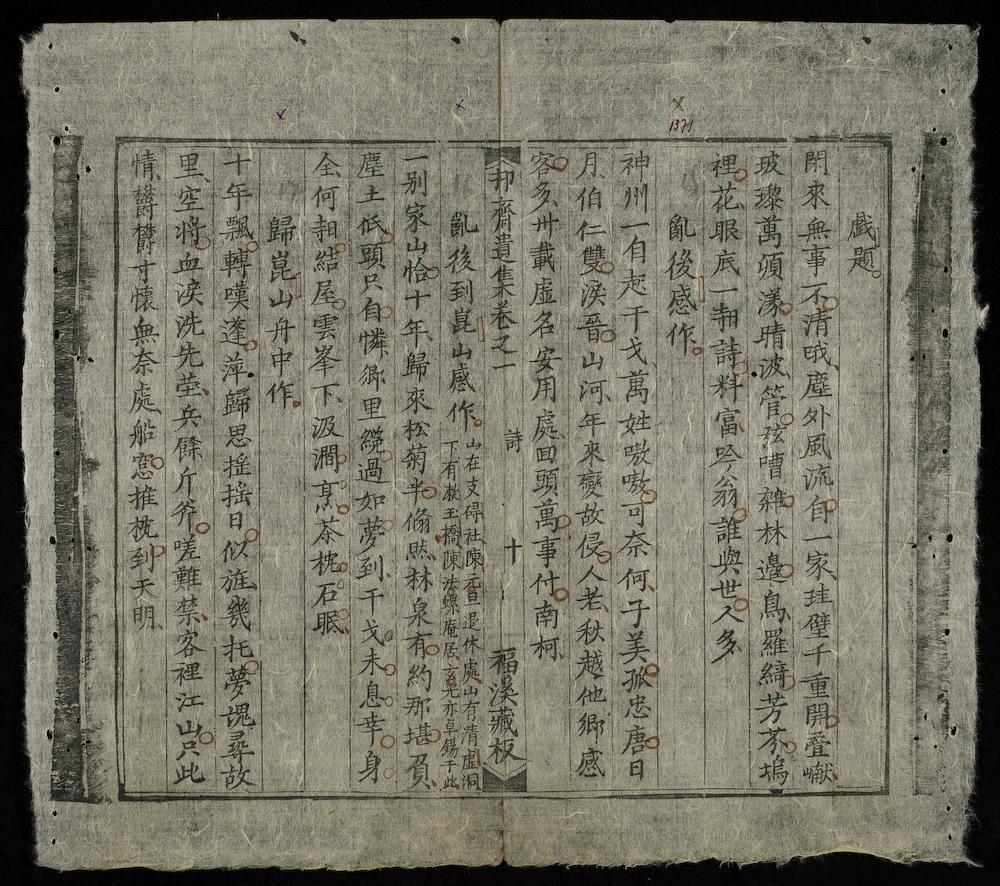 1371
戲題
閑來無事不清哦塵外風流自一家珪璧千重開疊巘
玻瓈萬頃漾晴波管弦嘈雜林邊鳥羅綺芳芬塢
裡花眼底一般詩料富吟翁誰與世人多
亂後感作
神州一自起干戈萬姓嗷嗷可奈何子美孤忠唐日
月伯仁雙淚晉山河年來變故侵人老秋越他鄉感
客多卅載虛名安用處回頭萬事付南柯
抑齋遺集卷之一 詩 十 福溪藏板
亂後到崑山感作
山在支碍社陳元旦退休處山有清虛洞
下有漱玉橋陳法螺庵居玄光亦卓錫于此
一别家山恰十年歸來松菊半翛然林泉有約那堪負
塵土低頭只自憐鄉里纔過如夢到干戈未息幸身
全何𬋩結屋雲峯下汲澗烹茶枕石眠
歸崑山舟中作
十年飄轉嘆蓬萍歸思搖搖日似旌幾托夢魂尋故
里空將血淚洗先塋兵餘斤斧嗟難禁客裡江山只此
情欝欝寸懷無奈處船窓推枕到天明